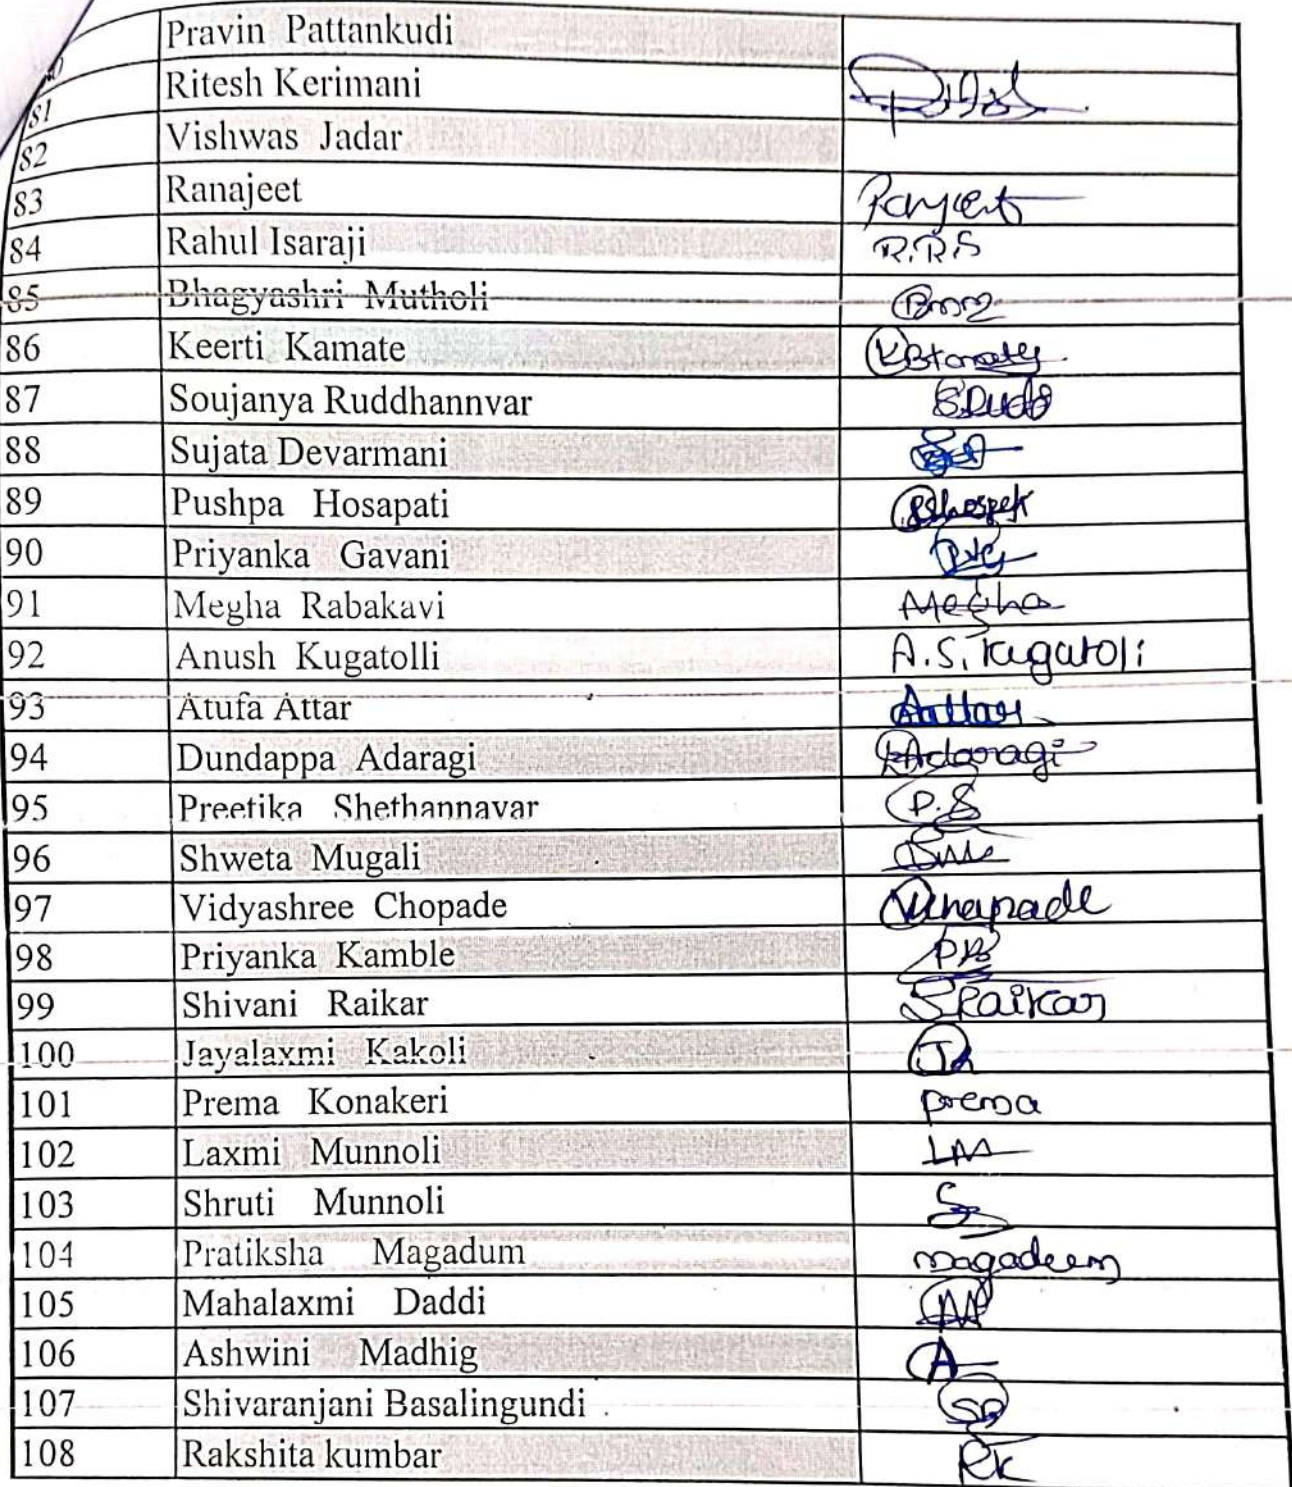 Pravin Pattankudi
81 Ritesh Kerimani
82 Vishwas Jadar
83 Ranajeet Ranjeet
84 Rahul Isaraji R.R.S
85 Bhagyashri Mutholi
86 Keerti Kamate
87 Soujanya Ruddhannvar
88 Sujata Devarmani
89 Pushpa Hosapati
90 Priyanka Gavani
91 Megha Rabakavi Megha
92 Anush Kugatolli A.S. Kugatoli
93 Atufa Attar Aattar
94 Dundappa Adaragi Adaragi
95 Preetika Shethannavar P.S
96 Shweta Mugali
97 Vidyashree Chopade
98 Priyanka Kamble
99 Shivani Raikar SRaikar
100 Jayalaxmi Kakoli
101 Prema Konakeri prema
102 Laxmi Munnoli
103 Shruti Munnoli
104 Pratiksha Magadum magadum
105 Mahalaxmi Daddi
106 Ashwini Madhig A
107 Shivaranjani Basalingundi SB
108 Rakshita kumbar RK